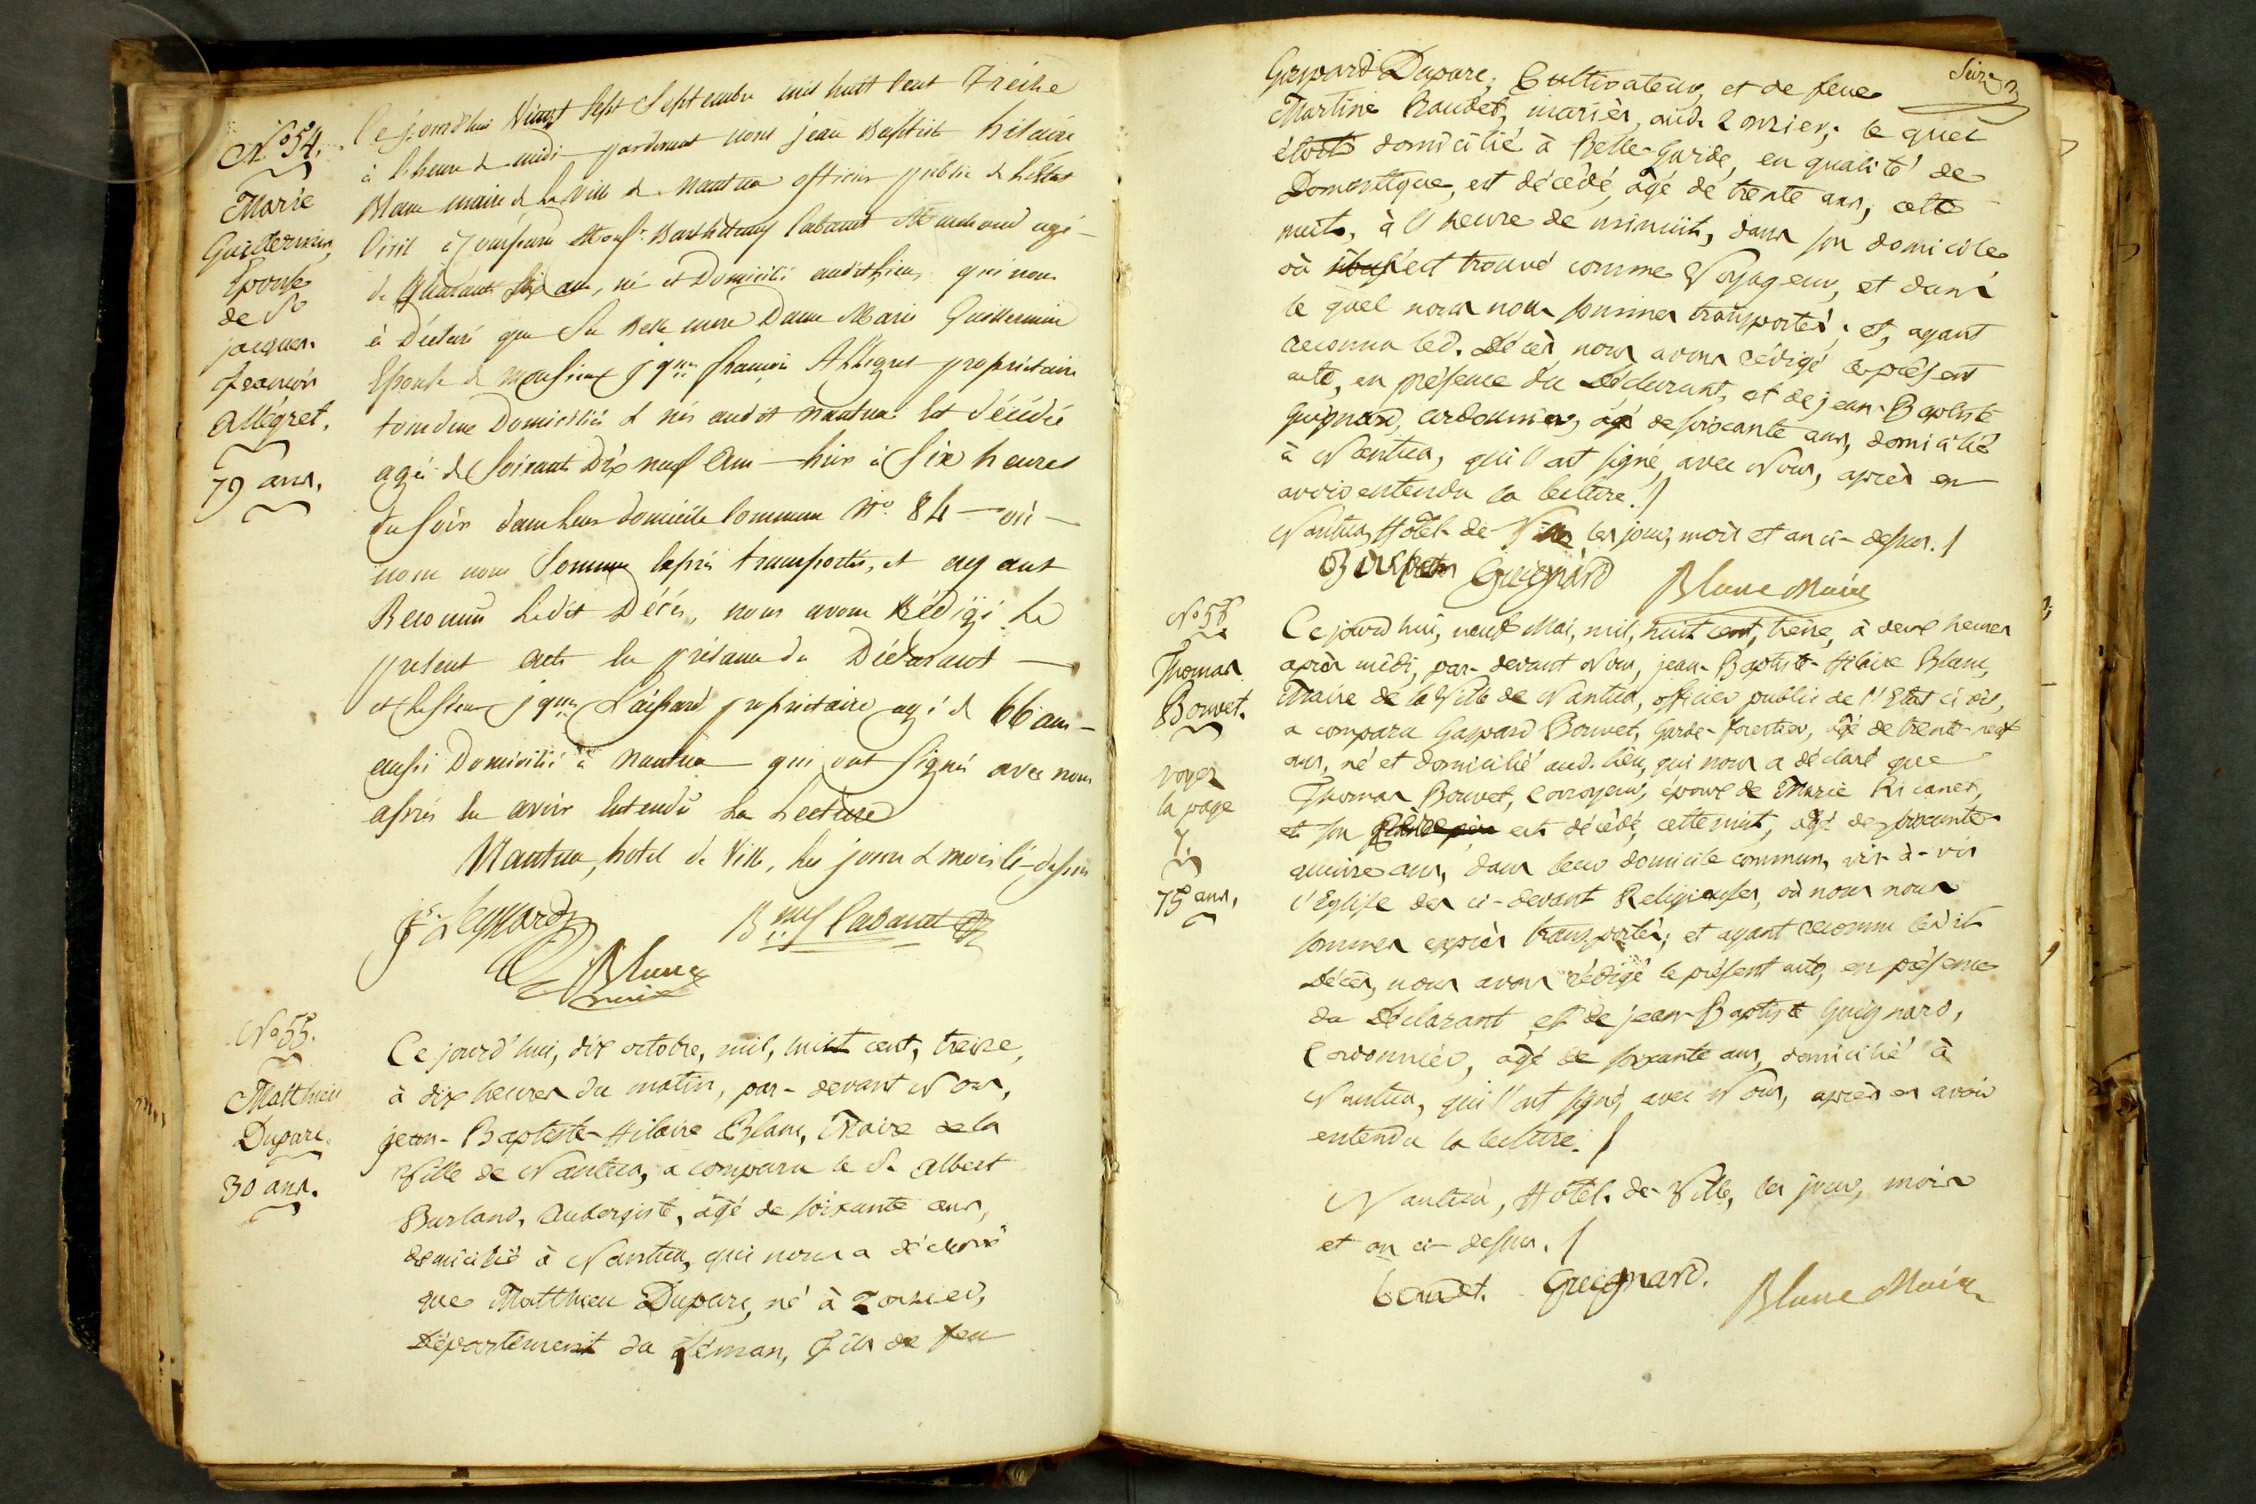 N.° 54.
Marie
Guillermin,
Epouse
de Sr
jacques-
françois
allégret.
79 ans.
Ce jourd'hui Vingt Sept Septembre mil huit Cent Treize
à l'heure de midi pardevant nous jean Baptiste hilaire
Blanc maire de la Ville de Nantua officier public de l'état
Civil a comparu Monsr. Barthélemy Cabanet Marchand agé
de quarante Six ans, né et Domicilié audit Lieu, qui nous
à Déclaré que Sa Belle mere Dame Marie Guillermin
Epouse de monsieur jques françois Allégret propriétaire
tous deux Domiciliés & nés audit nantua Est décédée
agée de Soixante Dix neuf Ans hier à Six heures
du Soir dans leur domicile Commun N° 84 — où —
nous nous Sommes Exprès transportés, et ayant
Reconnu Ledit Décès, nous avons Rédigé Le
présent acte En présence du Déclarant —
et le Sieur jques propriétaire agé de 66 ans —
aussi Domicilié à Nantua qui ont Signés avec nous
après En avoir Entendu La Lecture
Nantua, hotel de Ville, Les jours & mois Ci-dessus
Bmy Cabanet
Blanc
maire
N° 55.
Matthieu
Duparc.
30 ans.
Ce jourd'hui, dix octobre, mil, huit cent, treize,
à dix heures du matin, par-devant Nous,
jean-Baptiste-Hilaire Blanc, Maire de la
Ville de Nantua, a comparu le Sr albert
Burland, Aubergiste, âgé de soixante ans,
domicilié à Nantua, qui nous a déclaré
que Matthieu Duparc, né à Lonzier,
Département du Léman, fils de feu
Gaspard Duparc, Cultivateur, et de feue
Martine Baudet, mariés, aud. Lonzier; le quel
étoit domicilié à Belle-Garde, en qualité de
Domestique, est décédé, âgé de trente ans, cette
nuit, à l'heure de minuit, dans son domicile
où s'est trouvé comme Voyageur, et dans
le quel nous nous sommes transportés; et, ayant
reconnu led. Décès, nous avons rédigé le présent
acte, en présence du Déclarant, et de jean-Baptiste
Guignard, cordonnier, âgé de soixante ans, domicilié
à Nantua, qui l'ont signé, avec Nous, après en
avoir entendu la lecture./
Nantua, Hôtel-de-Ville les jour, mois et an ci-dessus./
Guignard Blanc Maire
N° 56
Thomas
Bouvet.
voyez
la page
7.
75 ans.
Ce jourd'hui, neuf Mai, mil, huit cent, treize, à deux heures
après midi, par-devant Nous, jean-Baptiste-Hilaire Blanc,
Maire de la Ville de Nantua, officier public de l'Etat civil,
a comparu Gaspard Bouvet, Garde-forestier, âgé de trente-neuf
ans, né et domicilié aud. lieu, qui nous a déclaré que
Thomas Bouvet, Corroyeur, époux de Marie Ricanet,
et son père est décédé, cette nuit, âgé de soixante
quinze ans, dans leur domicile commun, vis-à-vis
l'Eglise des ci-devant Religieuses, où nous nous
sommes exprès transportés; et ayant reconnu ledit
Décès, nous avons rédigé le présent acte, en présence
du Déclarant et de jean-Baptiste Guignard,
Cordonnier, âgé de soixante ans, domicilié à
Nantua, qui l'ont signé, avec Nous, après en avoir
entendu la lecture./
Nantua, Hôtel-de-Ville, les jour, mois
et an ci-dessus./
bouvet. Guignard. Blanc Maire